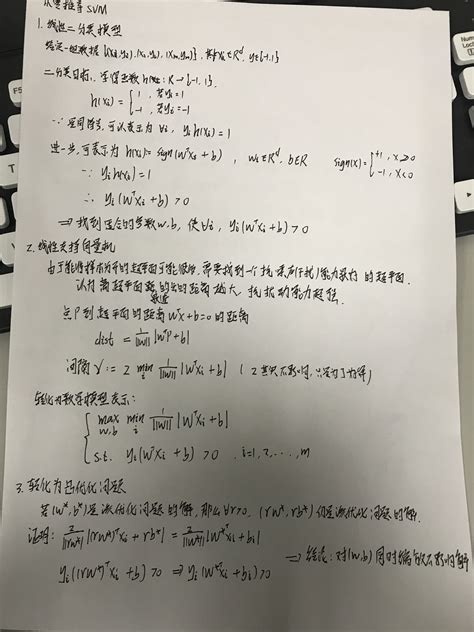 从零推导SVM
1. 线性二分类模型
给定一组数据 {(x₁,y₁), (x₂,y₂), (xₘ,yₘ)}, 其中xᵢ∈Rᵈ, yᵢ∈{-1,1}
二分类目标, 学得函数 h(x): R→{-1,1},
h(xᵢ) = { 1, 若yᵢ=1
-1, 若yᵢ=-1
∵ 同号, 可以表示为 ∀i, yᵢh(xᵢ)=1
进一步, 可表示为 h(xᵢ)= sign(wᵀxᵢ+b), w∈Rᵈ, b∈R sign(x)= { +1, x≥0
-1, x<0
∵ yᵢh(xᵢ)=1
∴ yᵢ(wᵀxᵢ+b)>0
⇒ 找到适合的参数w,b, 使∀i, yᵢ(wᵀxᵢ+b)>0
2. 线性支持向量机
由于能将样本分开的超平面可能很多, 需要找到一个抗噪声(干扰)能力最好的超平面.
认为离超平面最近的点的距离越大, 抗扰动能力越强.
点P到超平面的距离 wᵀx+b=0 的距离
dist = 1/||w|| |wᵀp+b|
间隔 γ := 2 min i 1/||w|| |wᵀxᵢ+b| (2其实不影响, 只是为了好解)
转化为数学模型表示:
{ max w,b min i 1/||w|| |wᵀxᵢ+b|
s.t. yᵢ(wᵀxᵢ+b)>0, i=1,2,...,m
3. 转化为凸优化问题
若(w*,b*)是该优化问题的解, 那么∀r>0, (rw*, rb*)仍是该优化问题的解.
证明: 2/||rw*|| |(rw*)ᵀxᵢ+rb*| = 2/||w*|| |w*ᵀxᵢ+bᵢ|
⇒ 结论: 对(w,b)同时缩放不影响解
yᵢ((rw*)ᵀxᵢ+rb*)>0 ⇒ yᵢ(w*ᵀxᵢ+bᵢ)>0